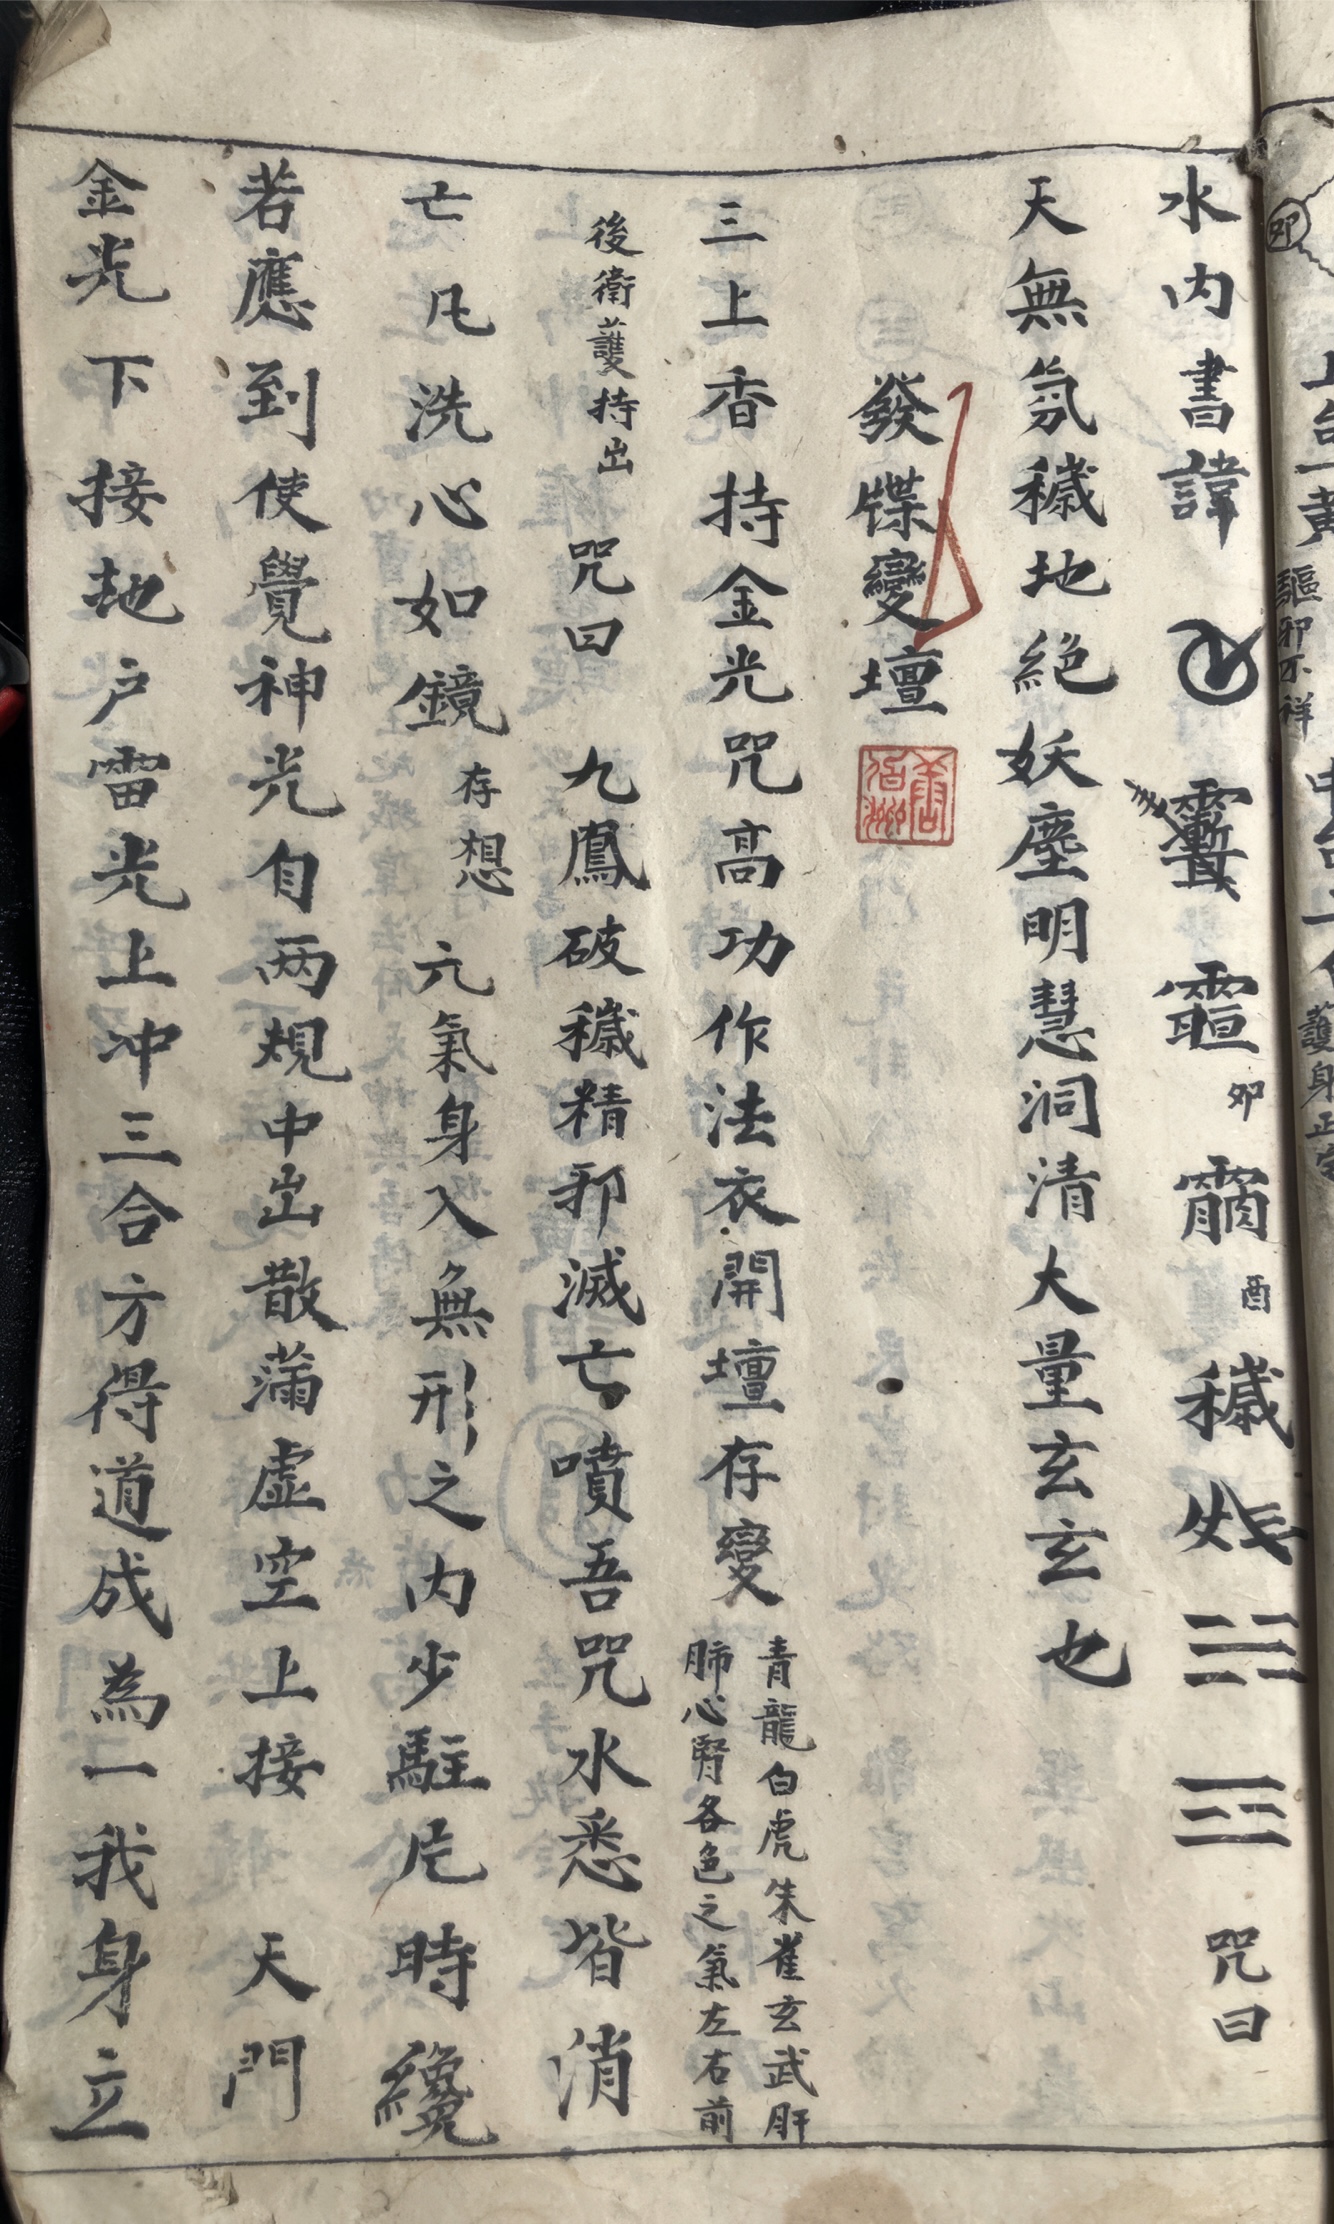 水内書諱 卯 酉 穢 咒曰
天無氛穢地絕妖塵明慧洞清大量玄玄也
發牒變壇
三上香持金光咒高功作法衣開壇存變
青龍白虎朱雀玄武肝
肺心腎各色之氣左右前
後衛護持出 咒曰 九鳳破穢精邪滅亡噴吾咒水悉皆消
亡凡洗心如鏡 存想 亢氣身入無形之内少駐片時纔
若應到使覺神光自两規中出散滿虛空上接 天門
金光下接地户雷光上冲三合方得道成為一我身立
驅邪不祥
護身正
卯